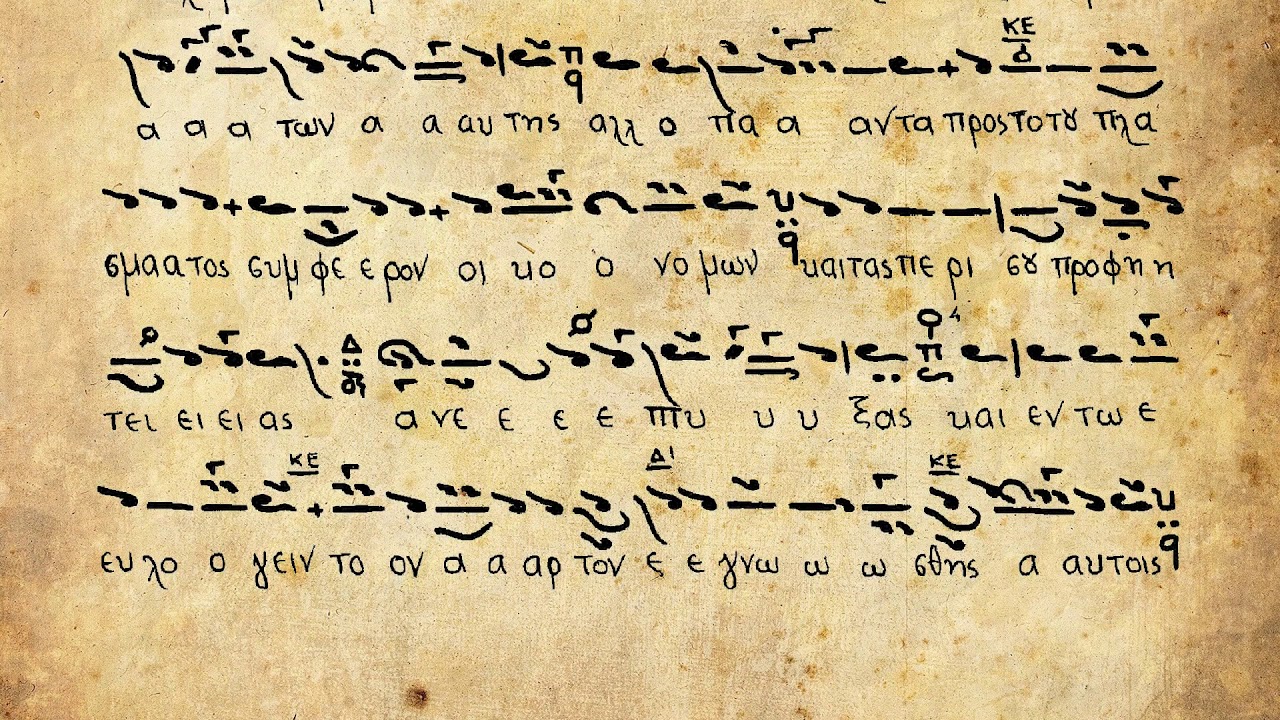 ΚΕ
α α α των α α αυ της αλλ ο πα α αντα προς το τȣ πλα
σμα ατος συμ φε ε ρον οι κο ο νο μων και τας πε ρι σȣ προ φη η
τει ει ει ας α νε ε ε ε πτυ υ υ ξας και εν τω ε
ΚΕ Δ' ΚΕ
ευ λο ο γειν το ον α α αρ τον ε ε γνω ω ω σθης α αυ τοις